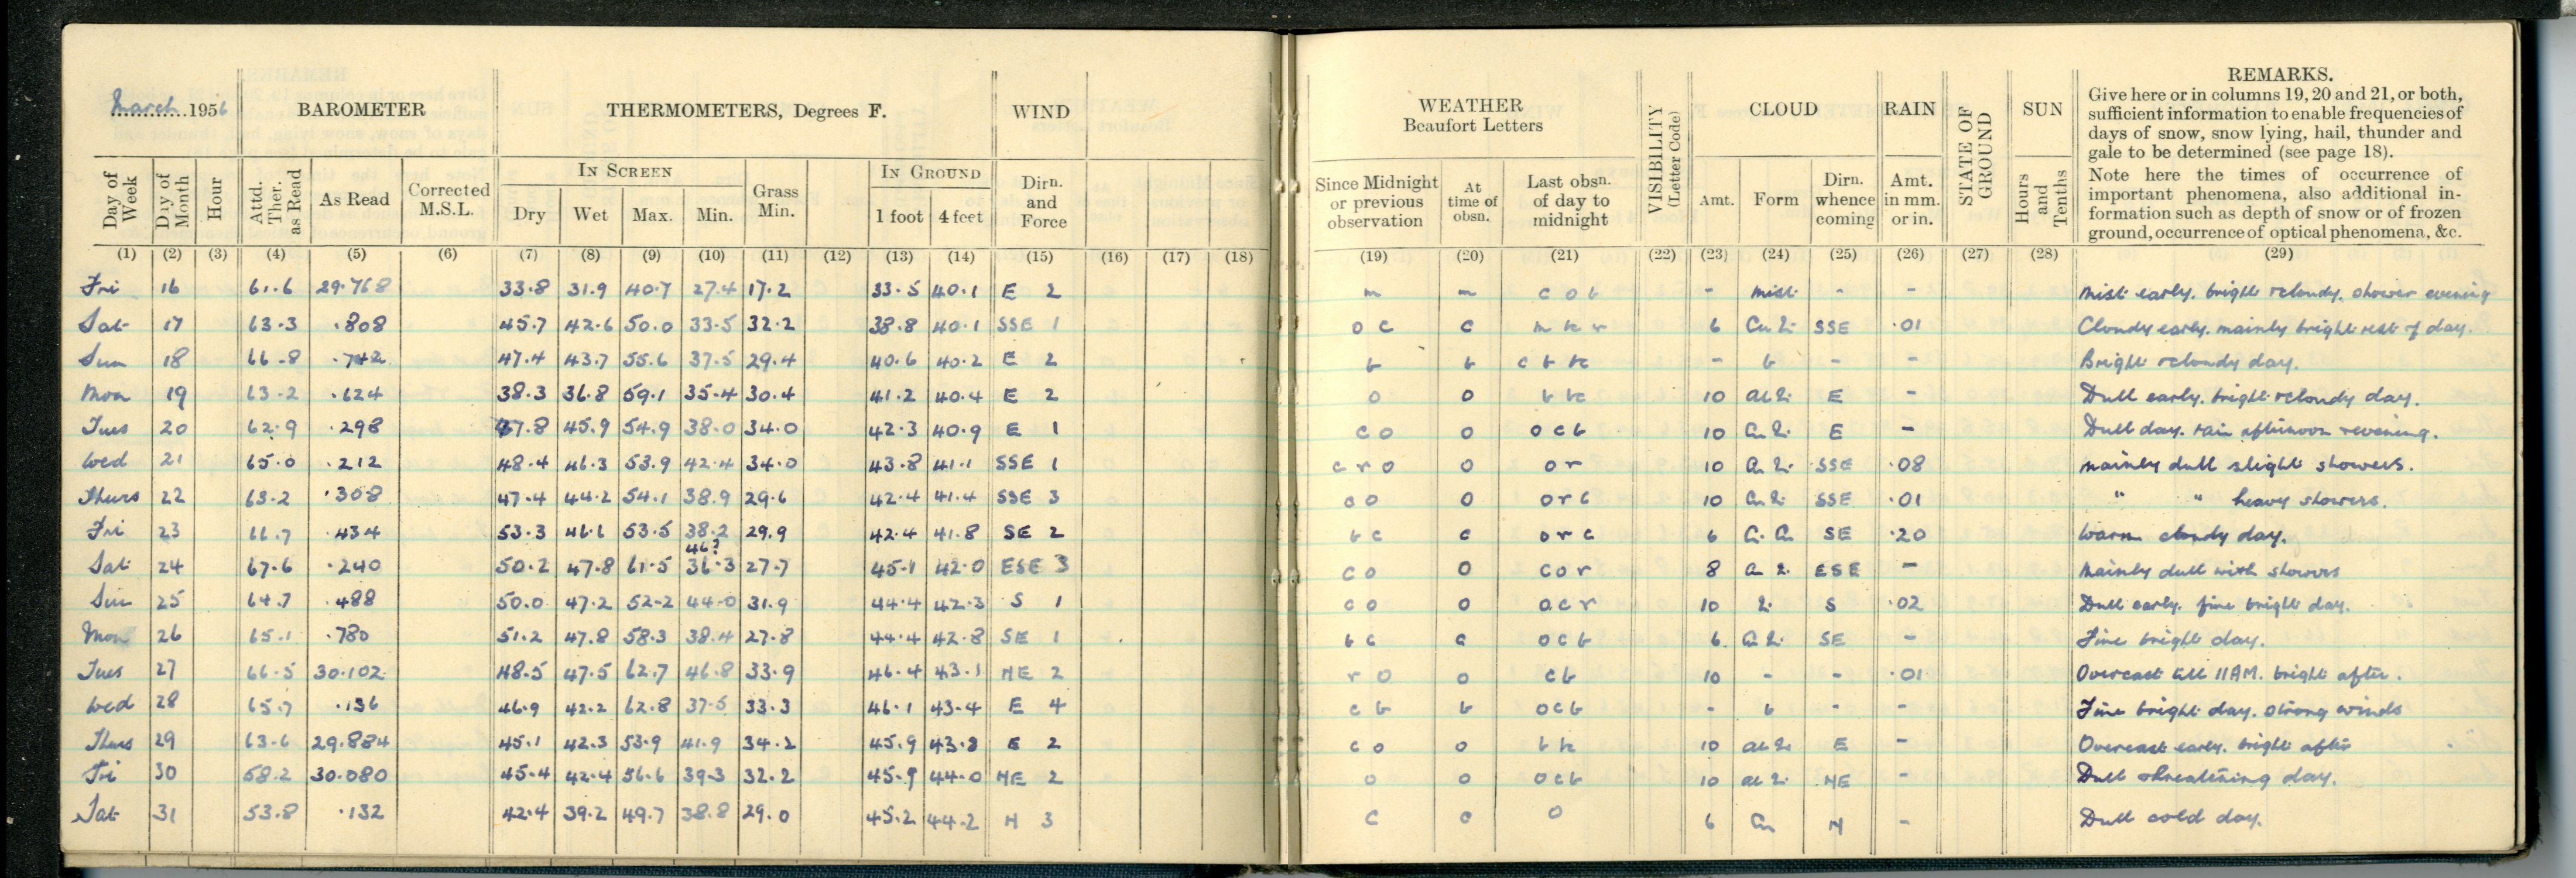 March 1956 BAROMETER THERMOMETERS, Degrees F. WIND WEATHER Beaufort Letters VISIBILITY (Letter Code) CLOUD RAIN STATE OF GROUND SUN REMARKS.
Give here or in columns 19, 20 and 21, or both,
sufficient information to enable frequencies of
days of snow, snow lying, hail, thunder and
gale to be determined (see page 18).
Note here the times of occurrence of
important phenomena, also additional in-
formation such as depth of snow or of frozen
ground, occurrence of optical phenomena, &c.
Day of Week Day of Month Hour Attd. Ther. as Read As Read Corrected M.S.L. IN SCREEN Dry Wet Max. Min. Grass Min. IN GROUND 1 foot 4 feet Dirn. and Force Since Midnight or previous observation At time of obsn. Last obsn. of day to midnight Amt. Form Dirn. whence coming Amt. in mm. or in. Hours and Tenths
(1) (2) (3) (4) (5) (6) (7) (8) (9) (10) (11) (12) (13) (14) (15) (16) (17) (18) (19) (20) (21) (22) (23) (24) (25) (26) (27) (28) (29)
Fri 16 61.6 29.768 33.8 31.9 40.7 27.4 17.2 33.5 40.1 E 2 m m c o b - mist - - Mist early. bright & cloudy. shower evening
Sat 17 63.3 .808 45.7 42.6 50.0 33.5 32.2 38.8 40.1 SSE 1 o c c 6 SSE .01 Cloudy early. mainly bright rest of day.
Sun 18 66.8 .742 47.4 43.7 55.6 37.5 29.4 40.6 40.2 E 2 b b c b bc - b - - Bright & cloudy day.
Mon 19 63.2 .624 38.3 36.8 59.1 35.4 30.4 41.2 40.4 E 2 o o b bc 10 E - Dull early. bright & cloudy day.
Tues 20 62.9 .298 47.8 45.9 54.9 38.0 34.0 42.3 40.9 E 1 c o o o c b 10 E - Dull day. rain afternoon & evening.
Wed 21 65.0 .212 48.4 46.3 53.9 42.4 34.0 43.8 41.1 SSE 1 c r o o o r 10 SSE .08 Mainly dull slight showers.
Thurs 22 63.2 .308 47.4 44.2 54.1 38.9 29.6 42.4 41.4 SSE 3 c o o o r c 10 SSE .01 " " heavy showers.
Fri 23 66.7 .434 53.3 46.6 53.5 38.2 29.9 42.4 41.8 SE 2 b c c o r c 6 SE .20 Warm cloudy day.
46?
Sat 24 67.6 .240 50.2 47.8 61.5 36.3 27.7 45.1 42.0 ESE 3 c o o c o r 8 ESE - Mainly dull with showers
Sun 25 64.7 .488 50.0 47.2 52.2 44.0 31.9 44.4 42.3 S 1 c o o o c r 10 S .02 Dull early. fine bright day.
Mon 26 65.1 .780 51.2 47.8 58.3 38.4 27.8 44.4 42.8 SE 1 b c c o c b 6 SE - Fine bright day.
Tues 27 66.5 30.102 48.5 47.5 62.7 46.8 33.9 46.4 43.1 NE 2 r o o c b 10 - - .01 Overcast till 11AM. bright after.
Wed 28 65.7 .136 46.9 42.2 62.8 37.5 33.3 46.1 43.4 E 4 c b b o c b - b - - Fine bright day. strong winds
Thurs 29 63.6 29.884 45.1 42.3 53.9 41.9 34.2 45.9 43.8 E 2 c o o b bc 10 E - Overcast early. bright after
Fri 30 58.2 30.080 45.4 42.4 56.6 39.3 32.2 45.9 44.0 NE 2 o o o c b 10 NE - Dull threatening day.
Sat 31 53.8 .132 42.4 39.2 49.7 38.8 29.0 45.2 44.2 N 3 c o o 6 Cu N - Dull cold day.